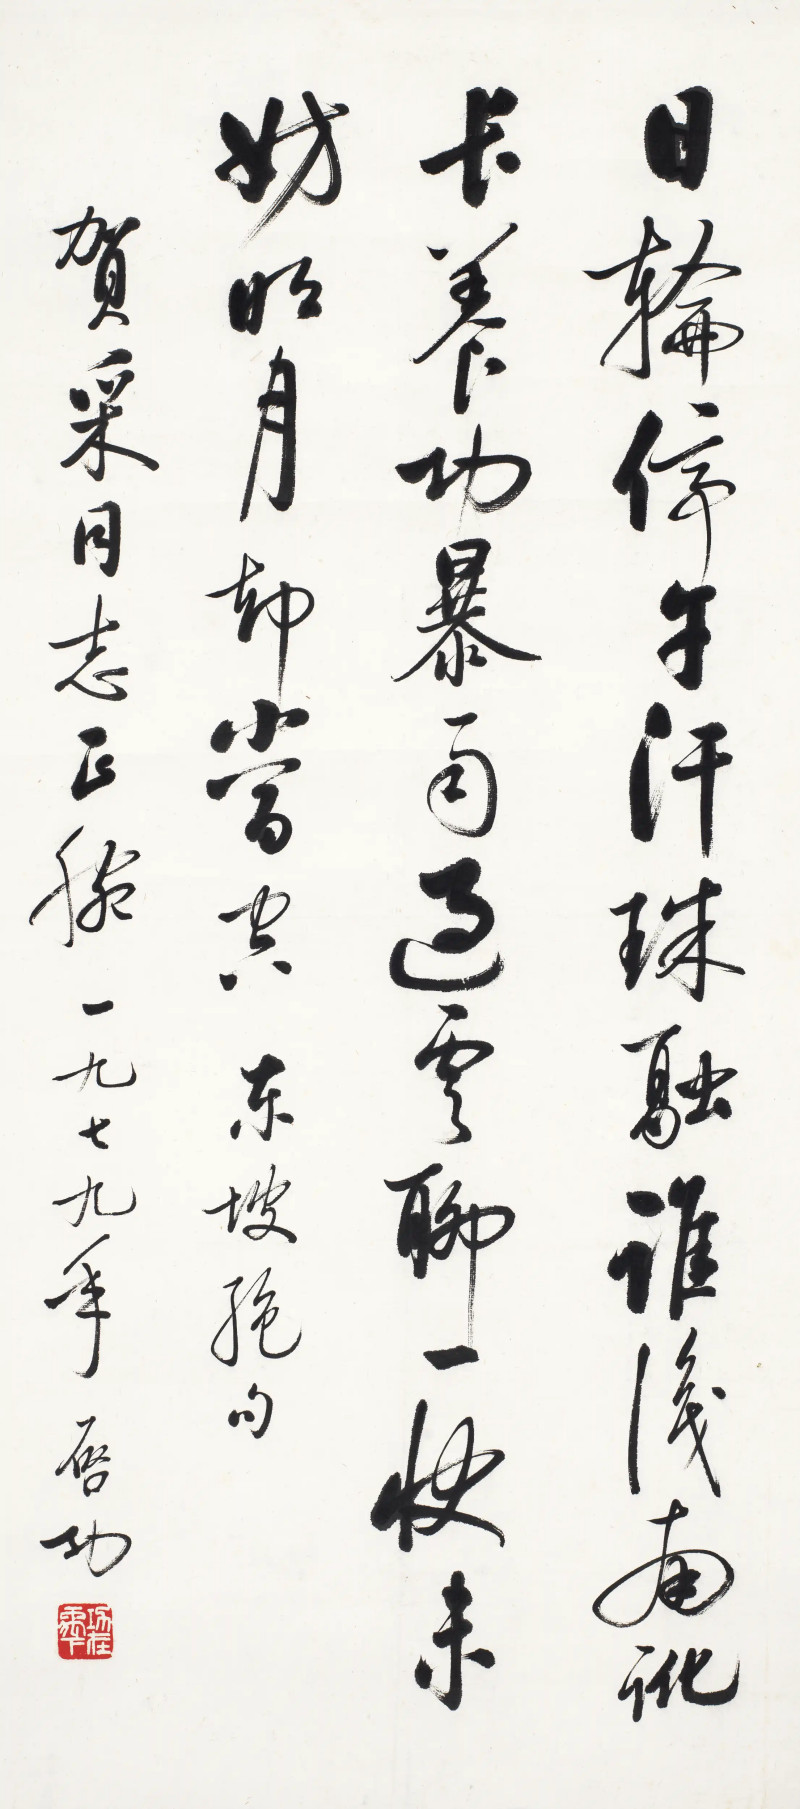 日輪停午汗珠融誰識南訛
長養功暴雨過雲聊一快未
妨明月却當空 东坡絕句
賀采同志正腕 一九七九年 啓功